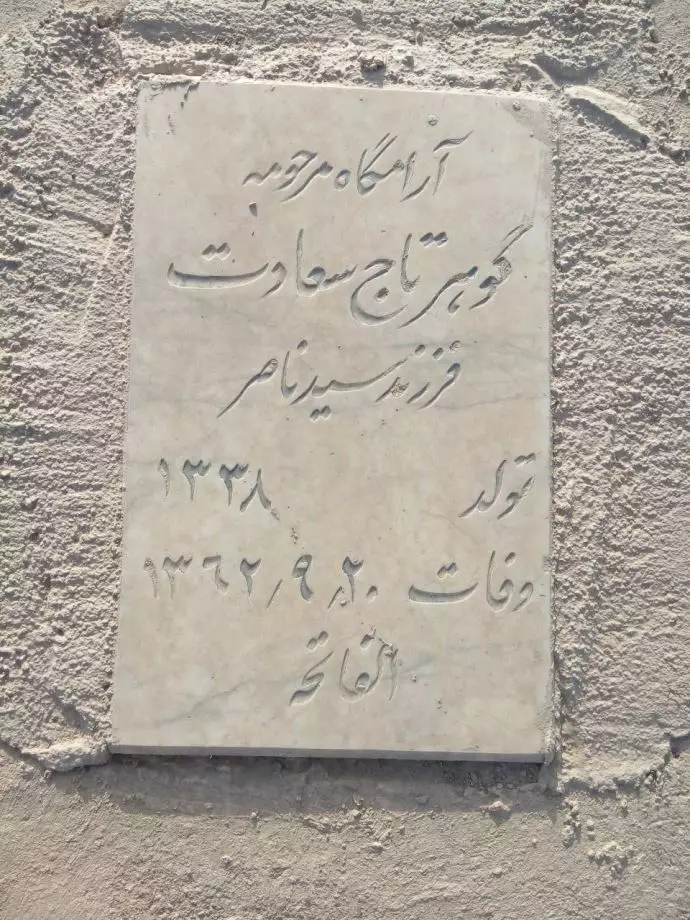 آرامگاه مرحومه
گوهر تاج سعادت
فرزند سید ناصر
تولد ۱۳۳۸
وفات ۱۳۶۲/۹/۲۰
الفاتحه